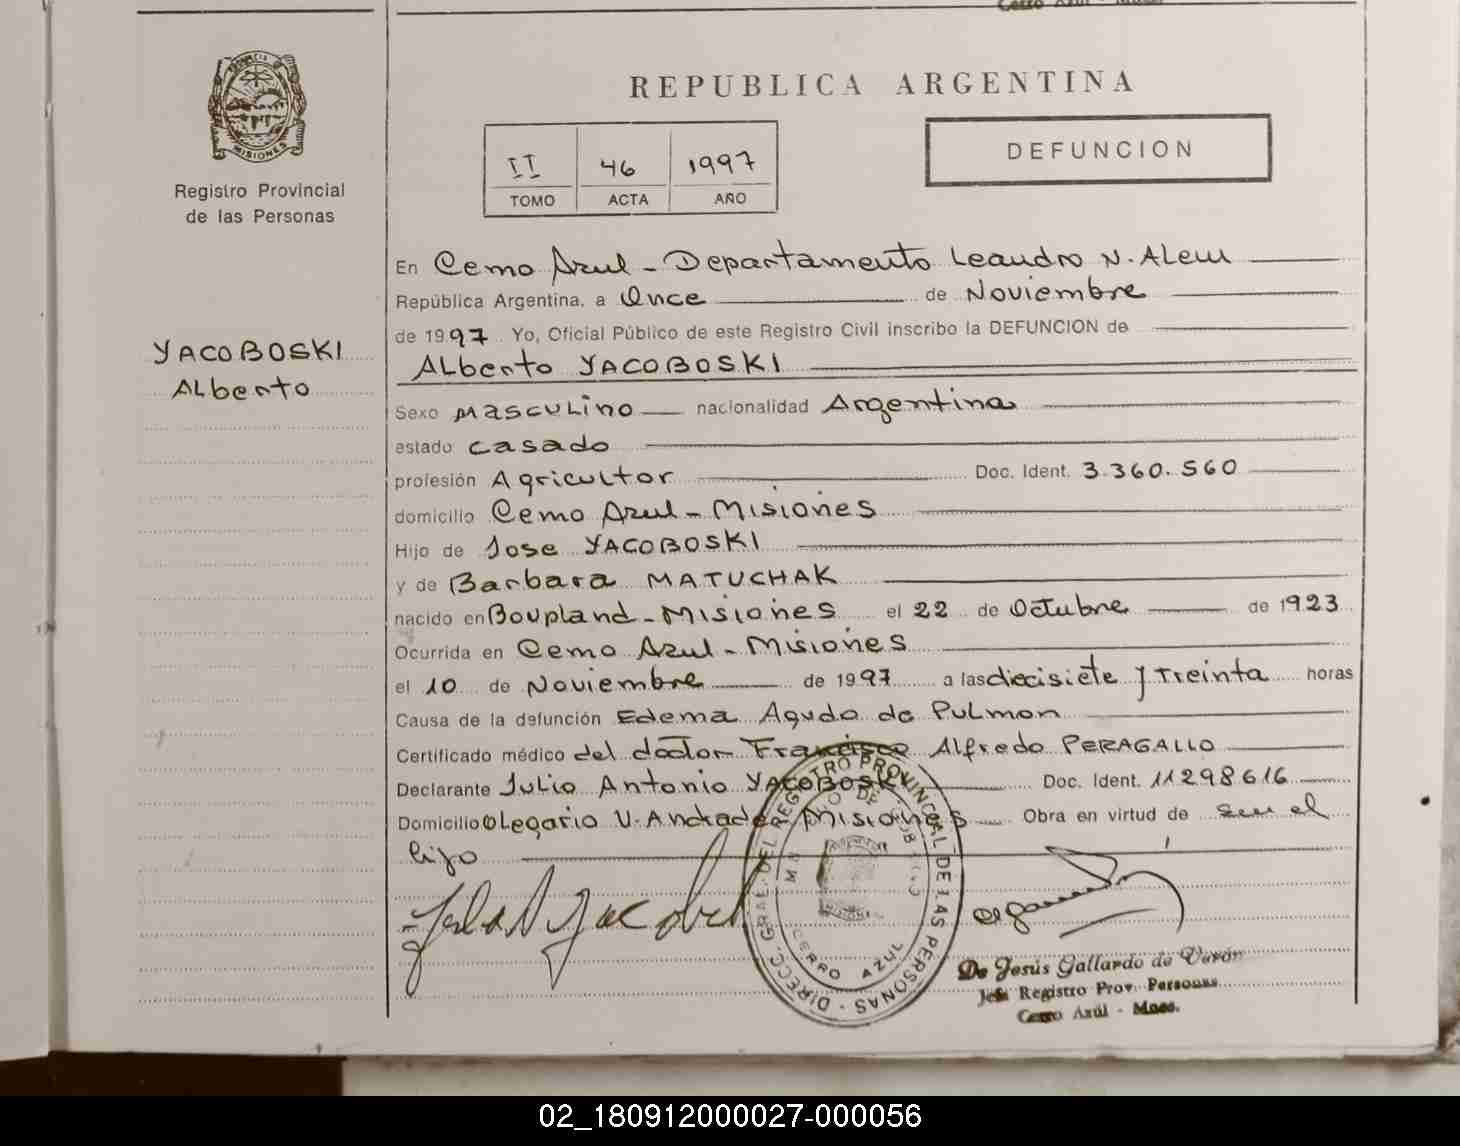 Cerro Azul - Misio
PROVINCIA
MISIONES
Registro Provincial
de las Personas
REPUBLICA ARGENTINA
II 46 1997
TOMO ACTA AÑO
DEFUNCION
YACOBOSKI
Alberto
En Cerro Azul - Departamento Leandro N. Alem
República Argentina, a Once de Noviembre
de 1997 Yo, Oficial Público de este Registro Civil inscribo la DEFUNCION de
Alberto YACOBOSKI
Sexo Masculino nacionalidad Argentina
estado casado
profesión Agricultor Doc. Ident. 3.360.560
domicilio Cerro Azul - Misiones
Hijo de Jose YACOBOSKI
y de Barbara MATUCHAK
nacido en Boupland - Misiones el 22 de Octubre de 1923
Ocurrida en Cerro Azul - Misiones
el 10 de Noviembre de 1997 a las diecisiete y treinta horas
Causa de la defunción Edema Agudo de Pulmon
Certificado médico del doctor Francisco Alfredo PERAGALLO
Declarante Julio Antonio YACOBOSKI Doc. Ident. 11298616
Domicilio Olegario V. Andrade - Misiones Obra en virtud de ser el
hijo
DIRECC. GRAL. DEL REGISTRO PROVINCIAL DE LAS PERSONAS
CERRO AZUL
De Jesús Gallardo de Verón
Jefa Registro Prov. Personas
Cerro Azúl - Mnes.
02_180912000027-000056